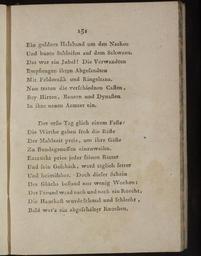 151
Ein goldnes Halsband um den Nacken
Und bunte Schleifen auf dem Schwanz.
Das war ein Jubel! Die Verwandten
Empfingen ihren Abgesandten
Mit Feldmusik und Ringeltanz.
Nun traten die verschiednen Casten,
Bey Hirten, Bauern und Dynasten
In ihre neuen Aemter ein.
Der erste Tag glich einem Feste:
Die Wirthe gaben froh die Gäste
Der Mahlzeit preis, um ihre Gäste
Zu Bundsgenossen einzuweihen.
Entzückt pries jeder seinen Ritter
Und sein Geblök, ward täglich fetter
Und heimischer. Doch dieser Schein
Des Glücks bestand nur wenig Wochen:
Der Freund ward nach und nach ein Knecht,
Die Hauskost wurde schmal und schlecht,
Bald war's ein abgeschälter Knochen,